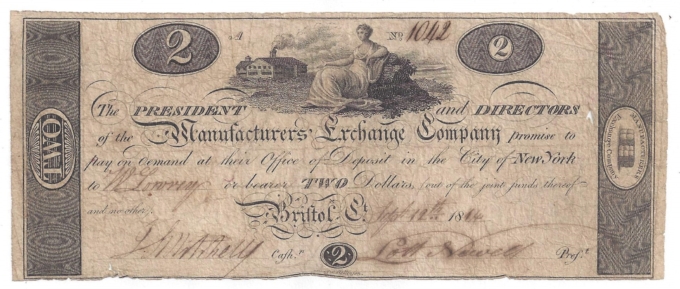 2 A No. 1042 2
The PRESIDENT and DIRECTORS
of the Manufacturers Exchange Company promise to
pay on demand at their Office of Deposit in the City of New York
to or bearer TWO Dollars, (out of the joint funds thereof
and no other)
Bristol Ct. 1814
Cash.r 2 Pres.t
TWO
MANUFACTURERS
Exchange Company